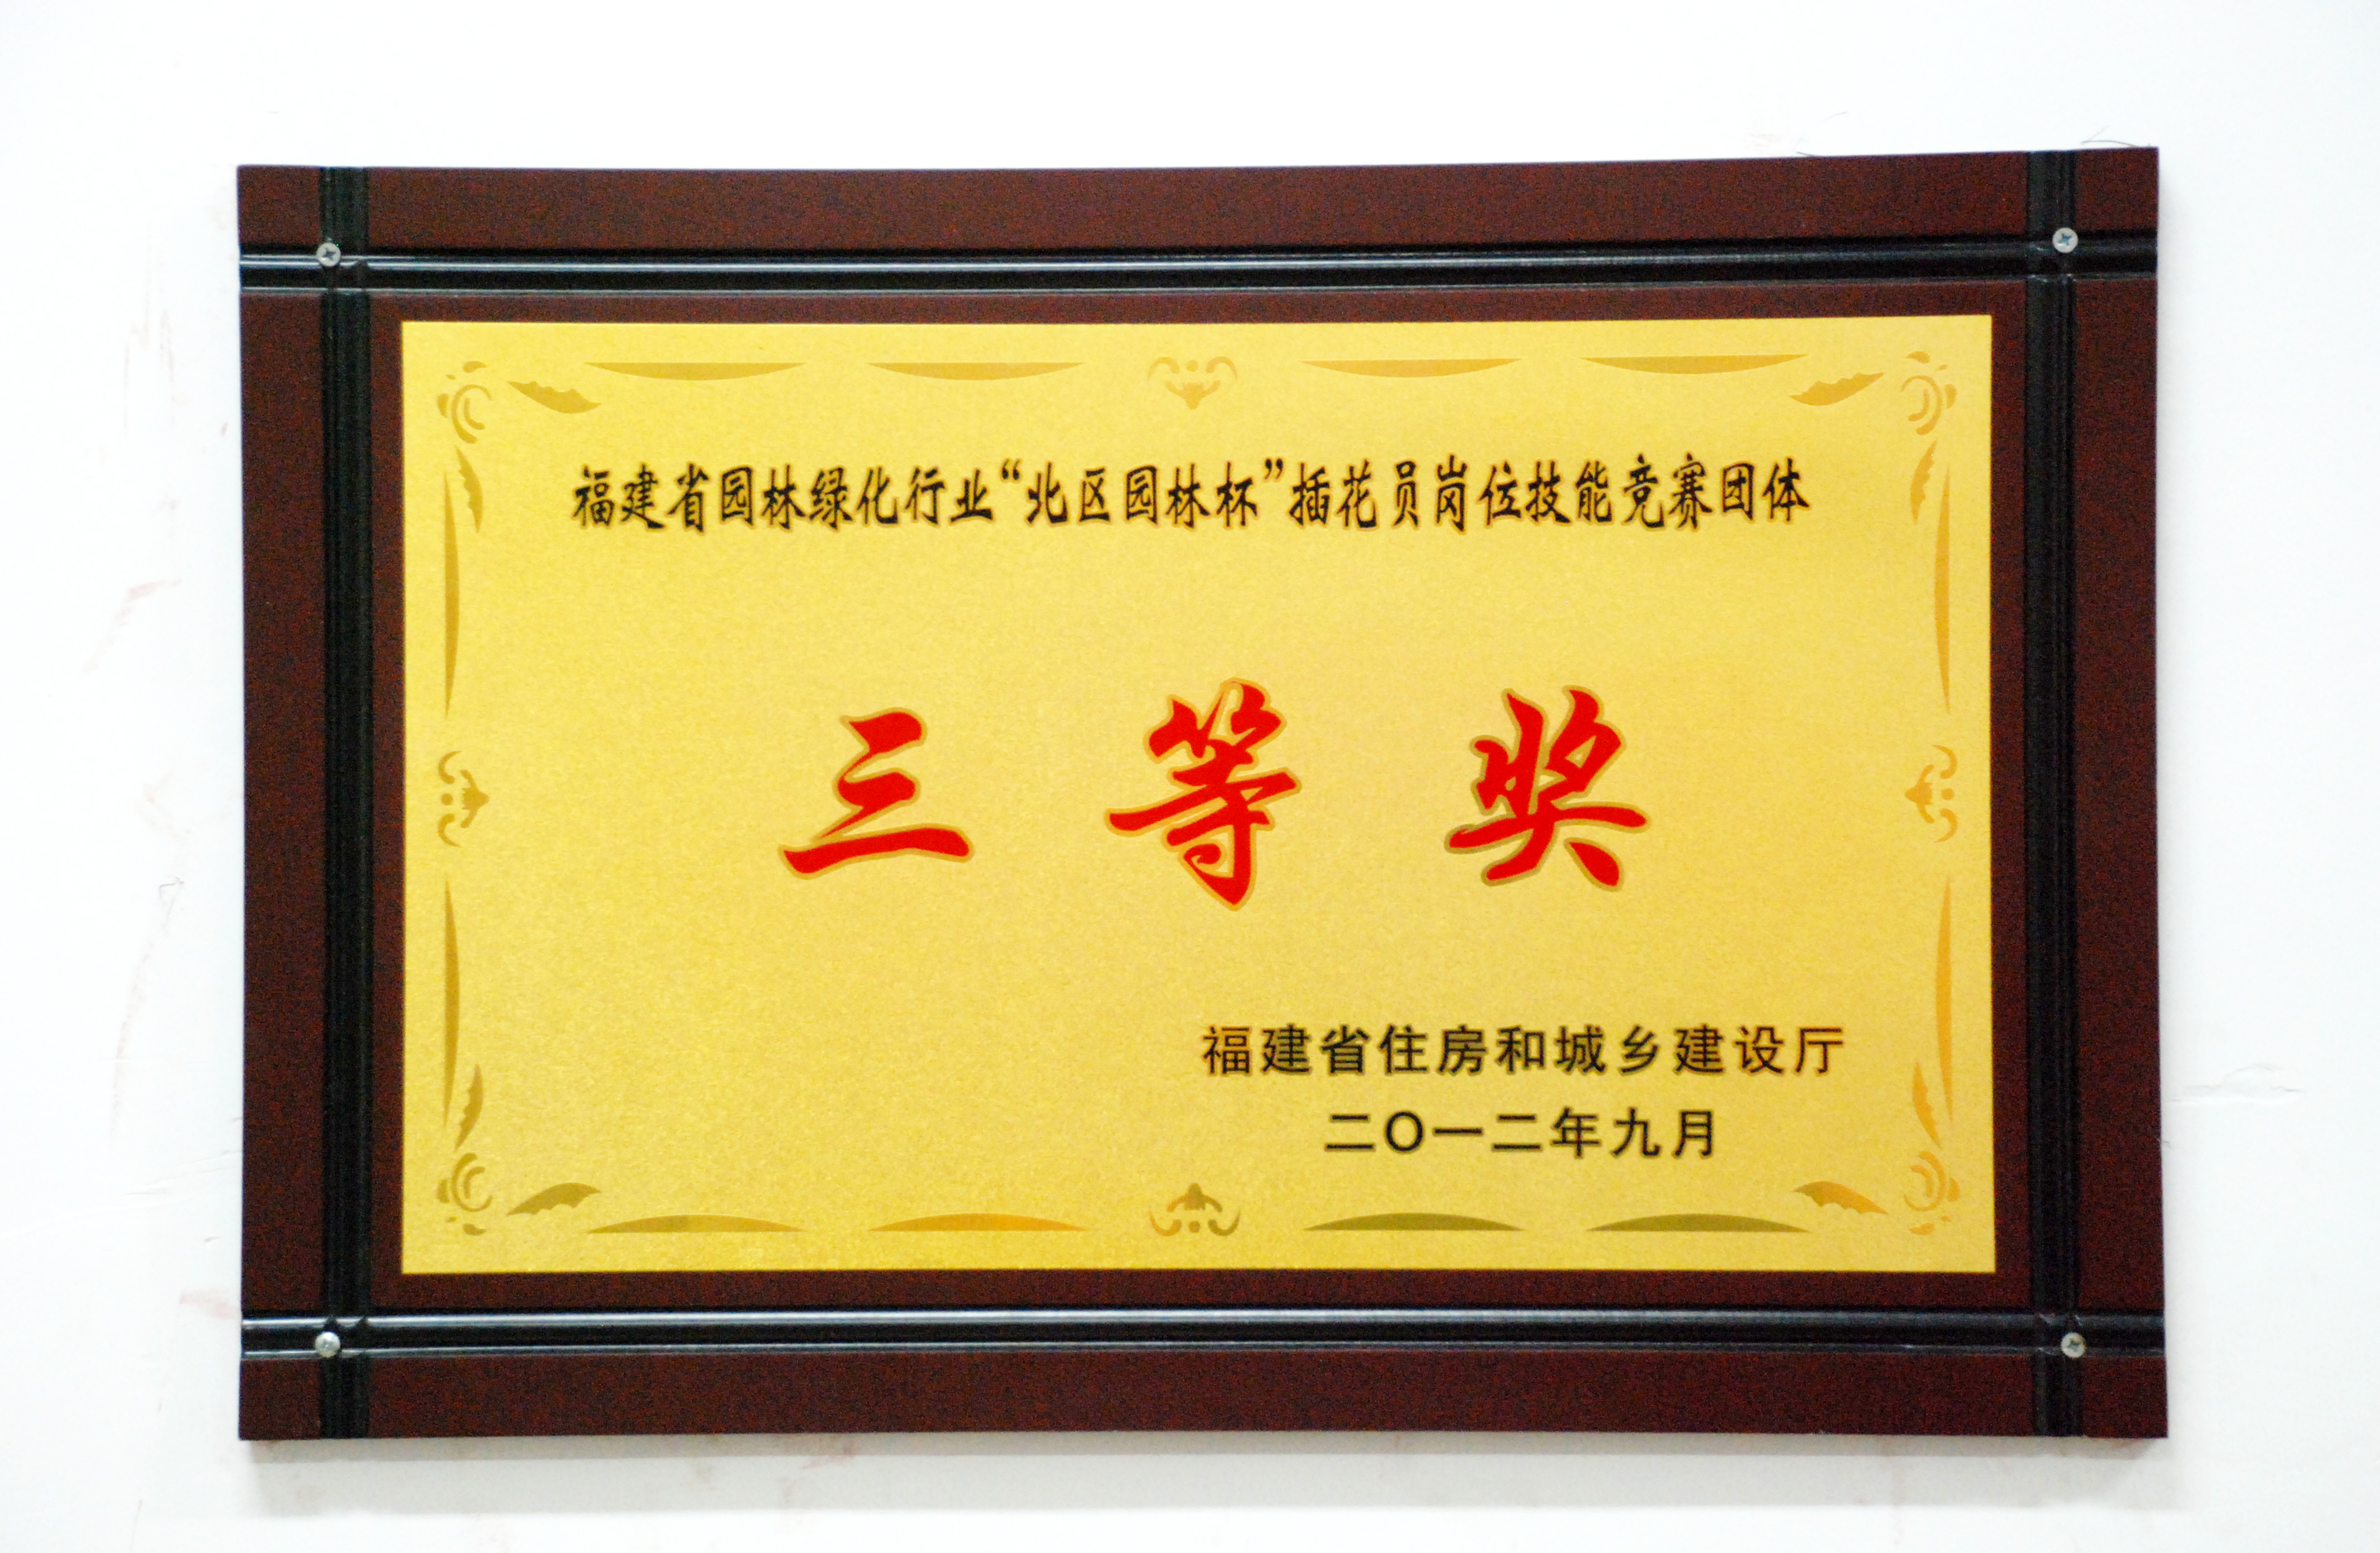 福建省园林绿化行业“北区园林杯”插花员岗位技能竞赛团体
三等奖
福建省住房和城乡建设厅
二〇一二年九月